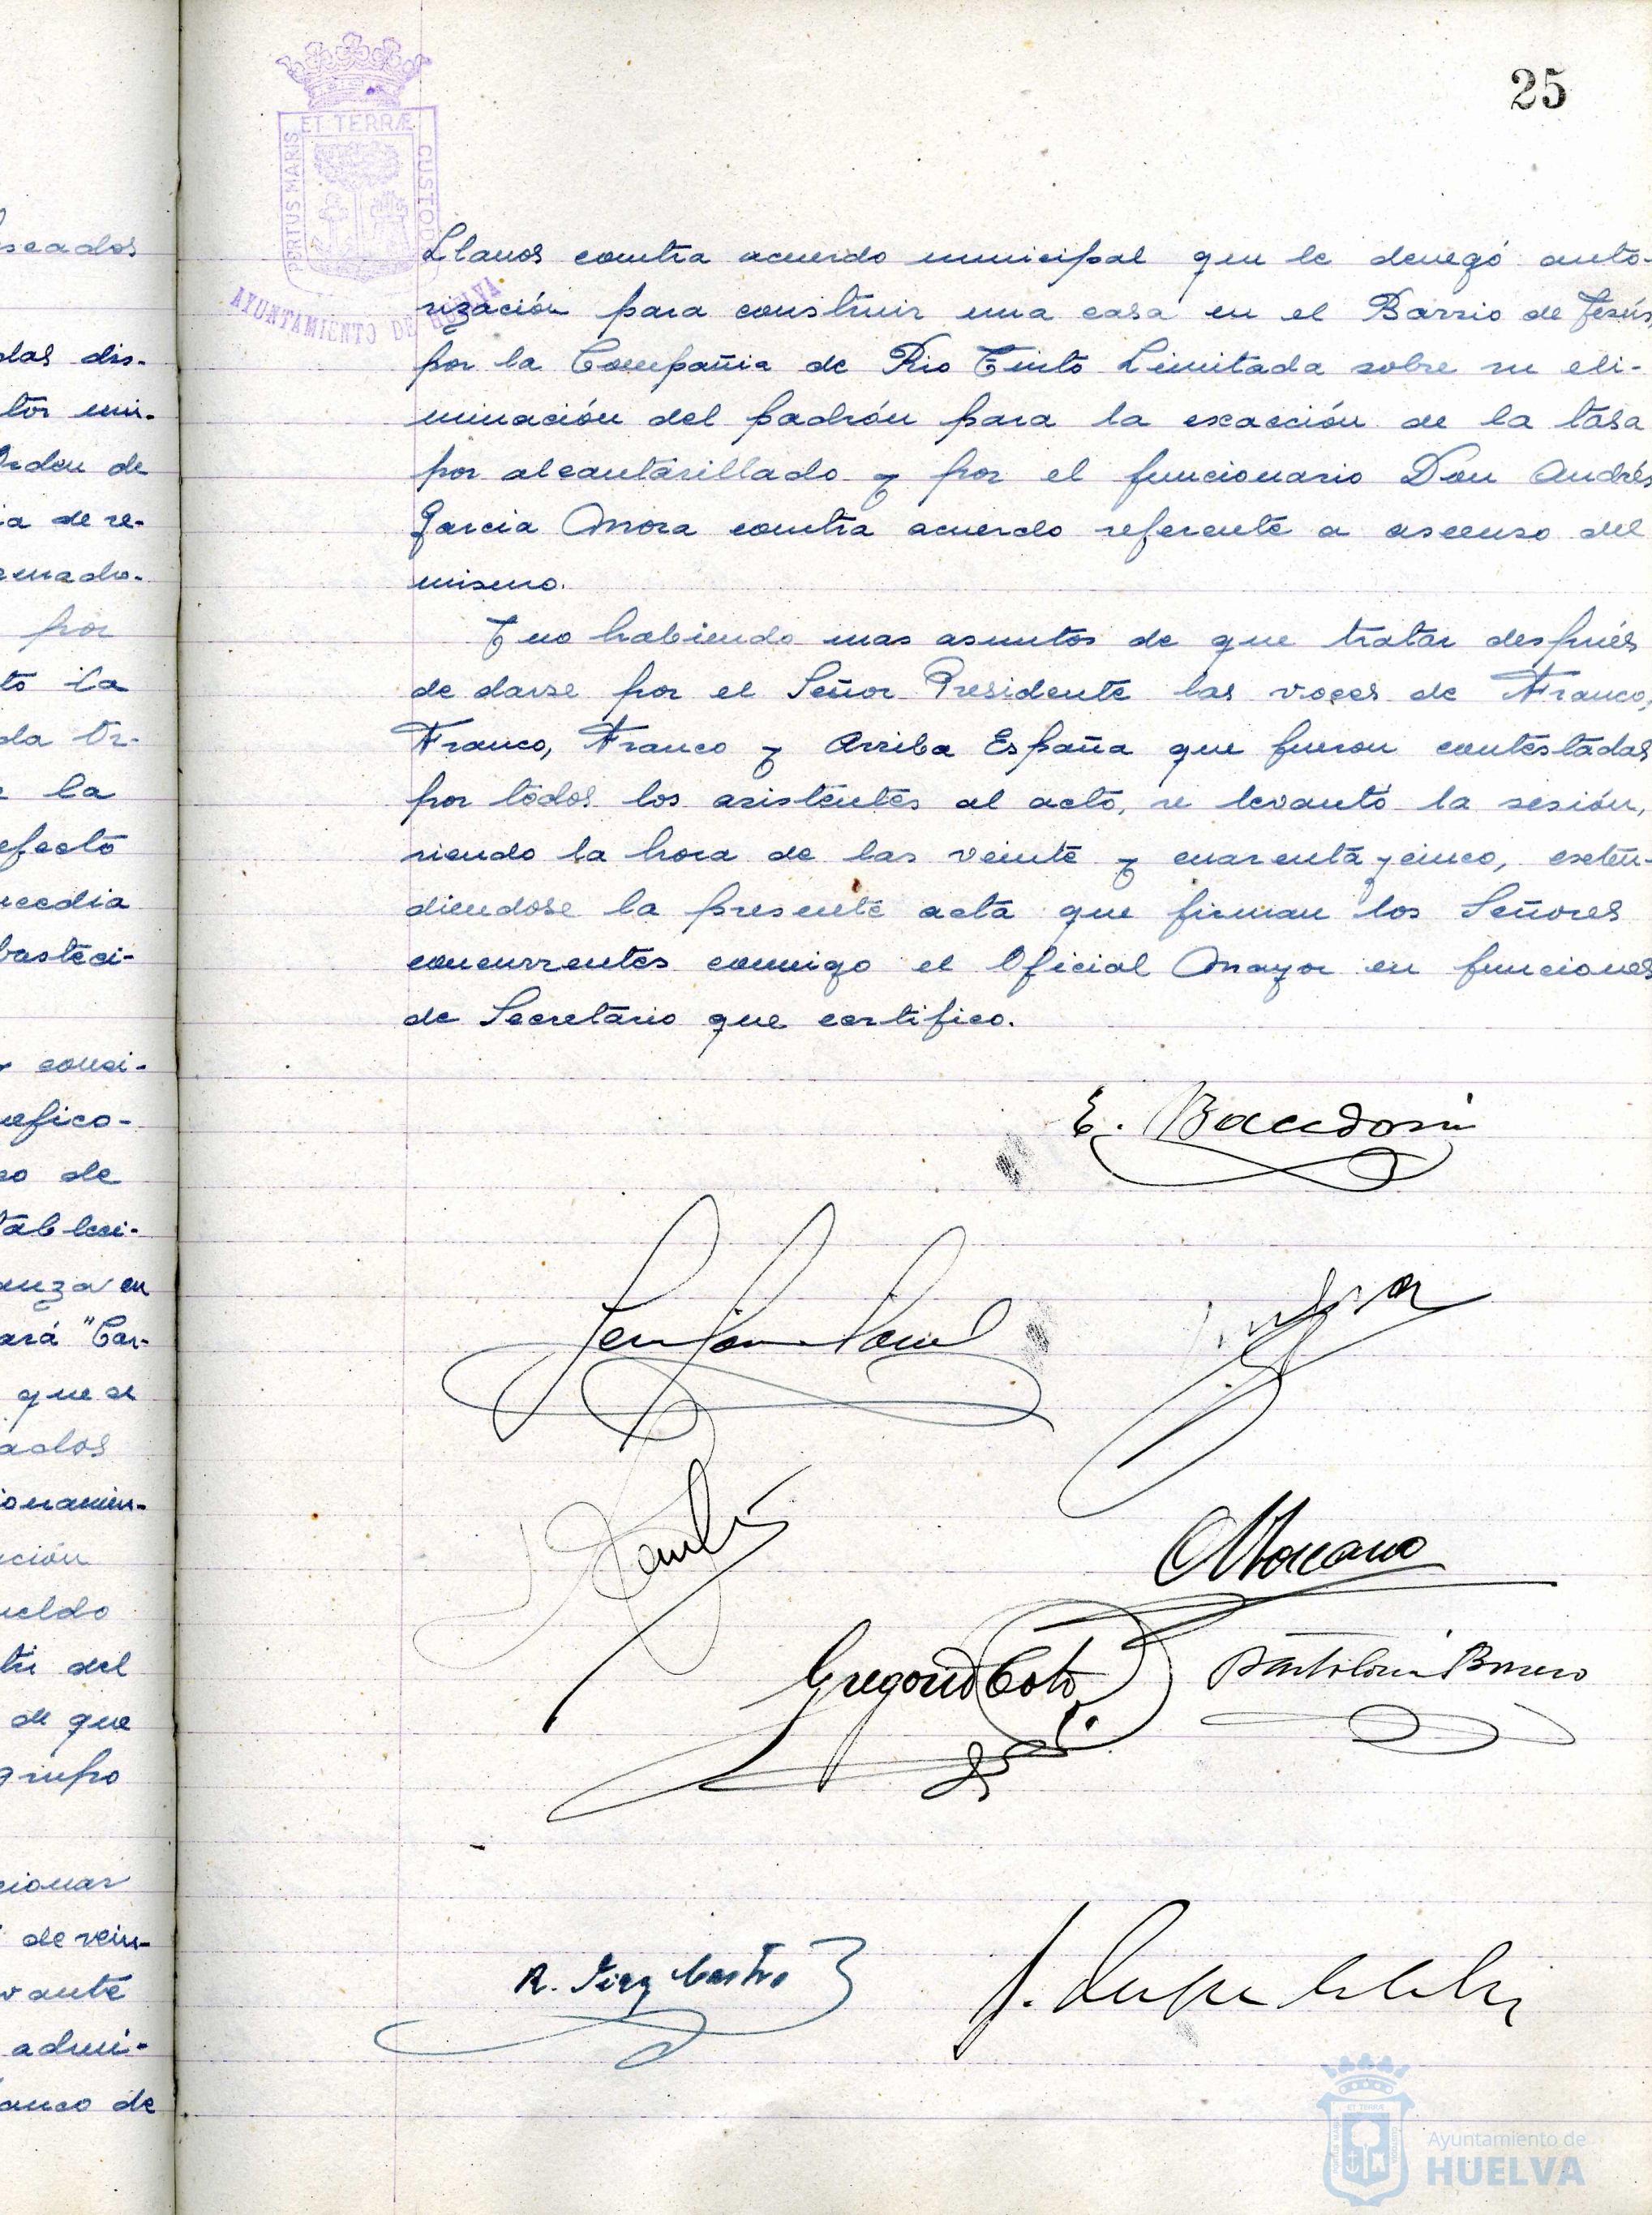 25
ET TERRÆ
PORTUS MARIS
CUSTOD
AYUNTAMIENTO DE HUELVA
seados
das dis-
tor mu-
Orden de
ia de re-
enado-
por
to la
da Or-
e la
efecto
cedia
basteci-
consi-
nefico-
so de
tableci-
anza en
ará "Car-
que se
ados
ionamien-
ción
ueldo
tir del
de que
grupo
cionar
de vein-
vante
admi-
anco de
Llanos contra acuerdo municipal que le denegó auto-
rización para construir una casa en el Barrio de Jesús
por la Compañia de Rio Tinto Limitada sobre su eli-
minación del padrón para la exacción de la tasa
por alcantarillado y por el funcionario Don Andrés
Garcia Mora contra acuerdo referente a ascenso del
mismo.
Y no habiendo mas asuntos de que tratar después
de darse por el Señor Presidente las voces de Franco,
Franco, Franco y Arriba España que fueron contestadas
por todos los asistentes al acto, se levantó la sesión,
siendo la hora de las veinte y cuarenta y cinco, exten-
diendose la presente acta que firman los Señores
concurrentes conmigo el Oficial Mayor en funciones
de Secretario que certifico.
E.
Gregorio Coto
R.
J.
ET TERRÆ
Ayuntamiento de
HUELVA